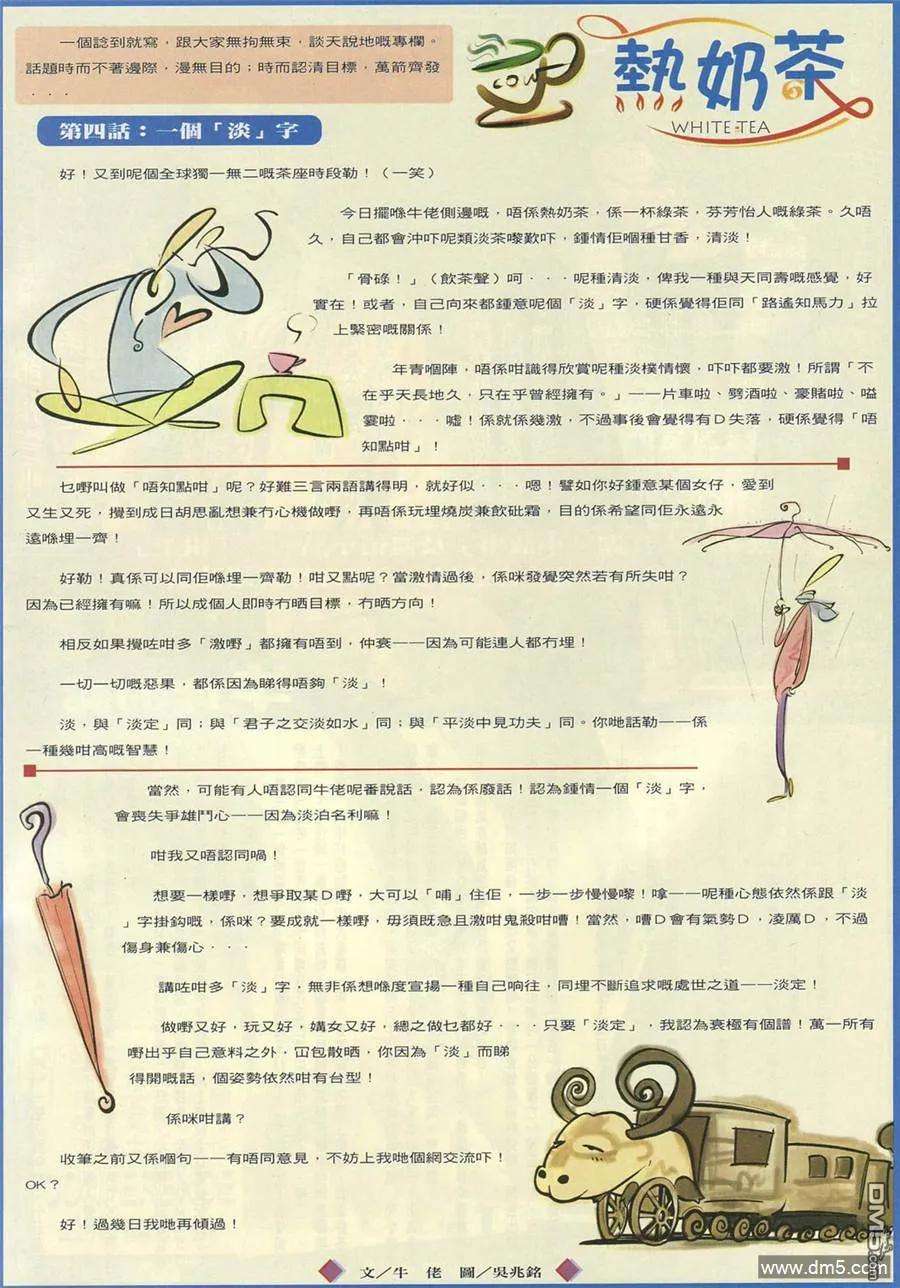 一個諗到就寫，跟大家無拘無束，談天說地嘅專欄。
話題時而不著邊際，漫無目的；時而認清目標，萬箭齊發
．．．
COW
熱奶茶
WHITE TEA
第四話：一個「淡」字
好！又到呢個全球獨一無二嘅茶座時段勒！（一笑）
今日擺喺牛佬側邊嘅，唔係熱奶茶，係一杯綠茶，芬芳怡人嘅綠茶。久唔
久，自己都會沖吓呢類淡茶嚟歎吓，鍾情佢嗰種甘香，清淡！
「骨碌！」（飲茶聲）呵．．．呢種清淡，俾我一種與天同壽嘅感覺，好
實在！或者，自己向來都鍾意呢個「淡」字，硬係覺得佢同「路遙知馬力」拉
上緊密嘅關係！
年青嗰陣，唔係咁識得欣賞呢種淡樸情懷，吓吓都要激！所謂「不
在乎天長地久，只在乎曾經擁有。」——片車啦、劈酒啦、豪賭啦、嗌
霎啦．．．噓！係就係幾激，不過事後會覺得有Ｄ失落，硬係覺得「唔
知點咁」！
乜嘢叫做「唔知點咁」呢？好難三言兩語講得明，就好似．．．嗯！譬如你好鍾意某個女仔，愛到
又生又死，攪到成日胡思亂想兼冇心機做嘢，再唔係玩埋燒炭兼飲砒霜，目的係希望同佢永遠永
遠喺埋一齊！
好勒！真係可以同佢喺埋一齊勒！咁又點呢？當激情過後，係咪發覺突然若有所失咁？
因為已經擁有嘛！所以成個人即時冇晒目標，冇晒方向！
相反如果攪咗咁多「激嘢」都擁有唔到，仲衰——因為可能連人都冇埋！
一切一切嘅惡果，都係因為睇得唔夠「淡」！
淡，與「淡定」同；與「君子之交淡如水」同；與「平淡中見功夫」同。你哋話勒——係
一種幾咁高嘅智慧！
當然，可能有人唔認同牛佬呢番說話，認為係廢話！認為鍾情一個「淡」字，
會喪失爭雄鬥心——因為淡泊名利嘛！
咁我又唔認同喎！
想要一樣嘢，想爭取某Ｄ嘢，大可以「哺」住佢，一步一步慢慢嚟！嗱——呢種心態依然係跟「淡
」字掛鈎嘅，係咪？要成就一樣嘢，毋須既急且激咁鬼殺咁嘈！當然，嘈Ｄ會有氣勢Ｄ，凌厲Ｄ，不過
傷身兼傷心．．．
講咗咁多「淡」字，無非係想喺度宣揚一種自己响往，同埋不斷追求嘅處世之道——淡定！
做嘢又好，玩又好，媾女又好，總之做乜都好．．．只要「淡定」，我認為衰極有個譜！萬一所有
嘢出乎自己意料之外，冚包散晒，你因為「淡」而睇
得開嘅話，個姿勢依然咁有台型！
係咪咁講？
收筆之前又係嗰句——有唔同意見，不妨上我哋個網交流吓！
OK？
好！過幾日我哋再傾過！
文／牛佬 圖／吳兆銘
DM5.com
www.dm5.com